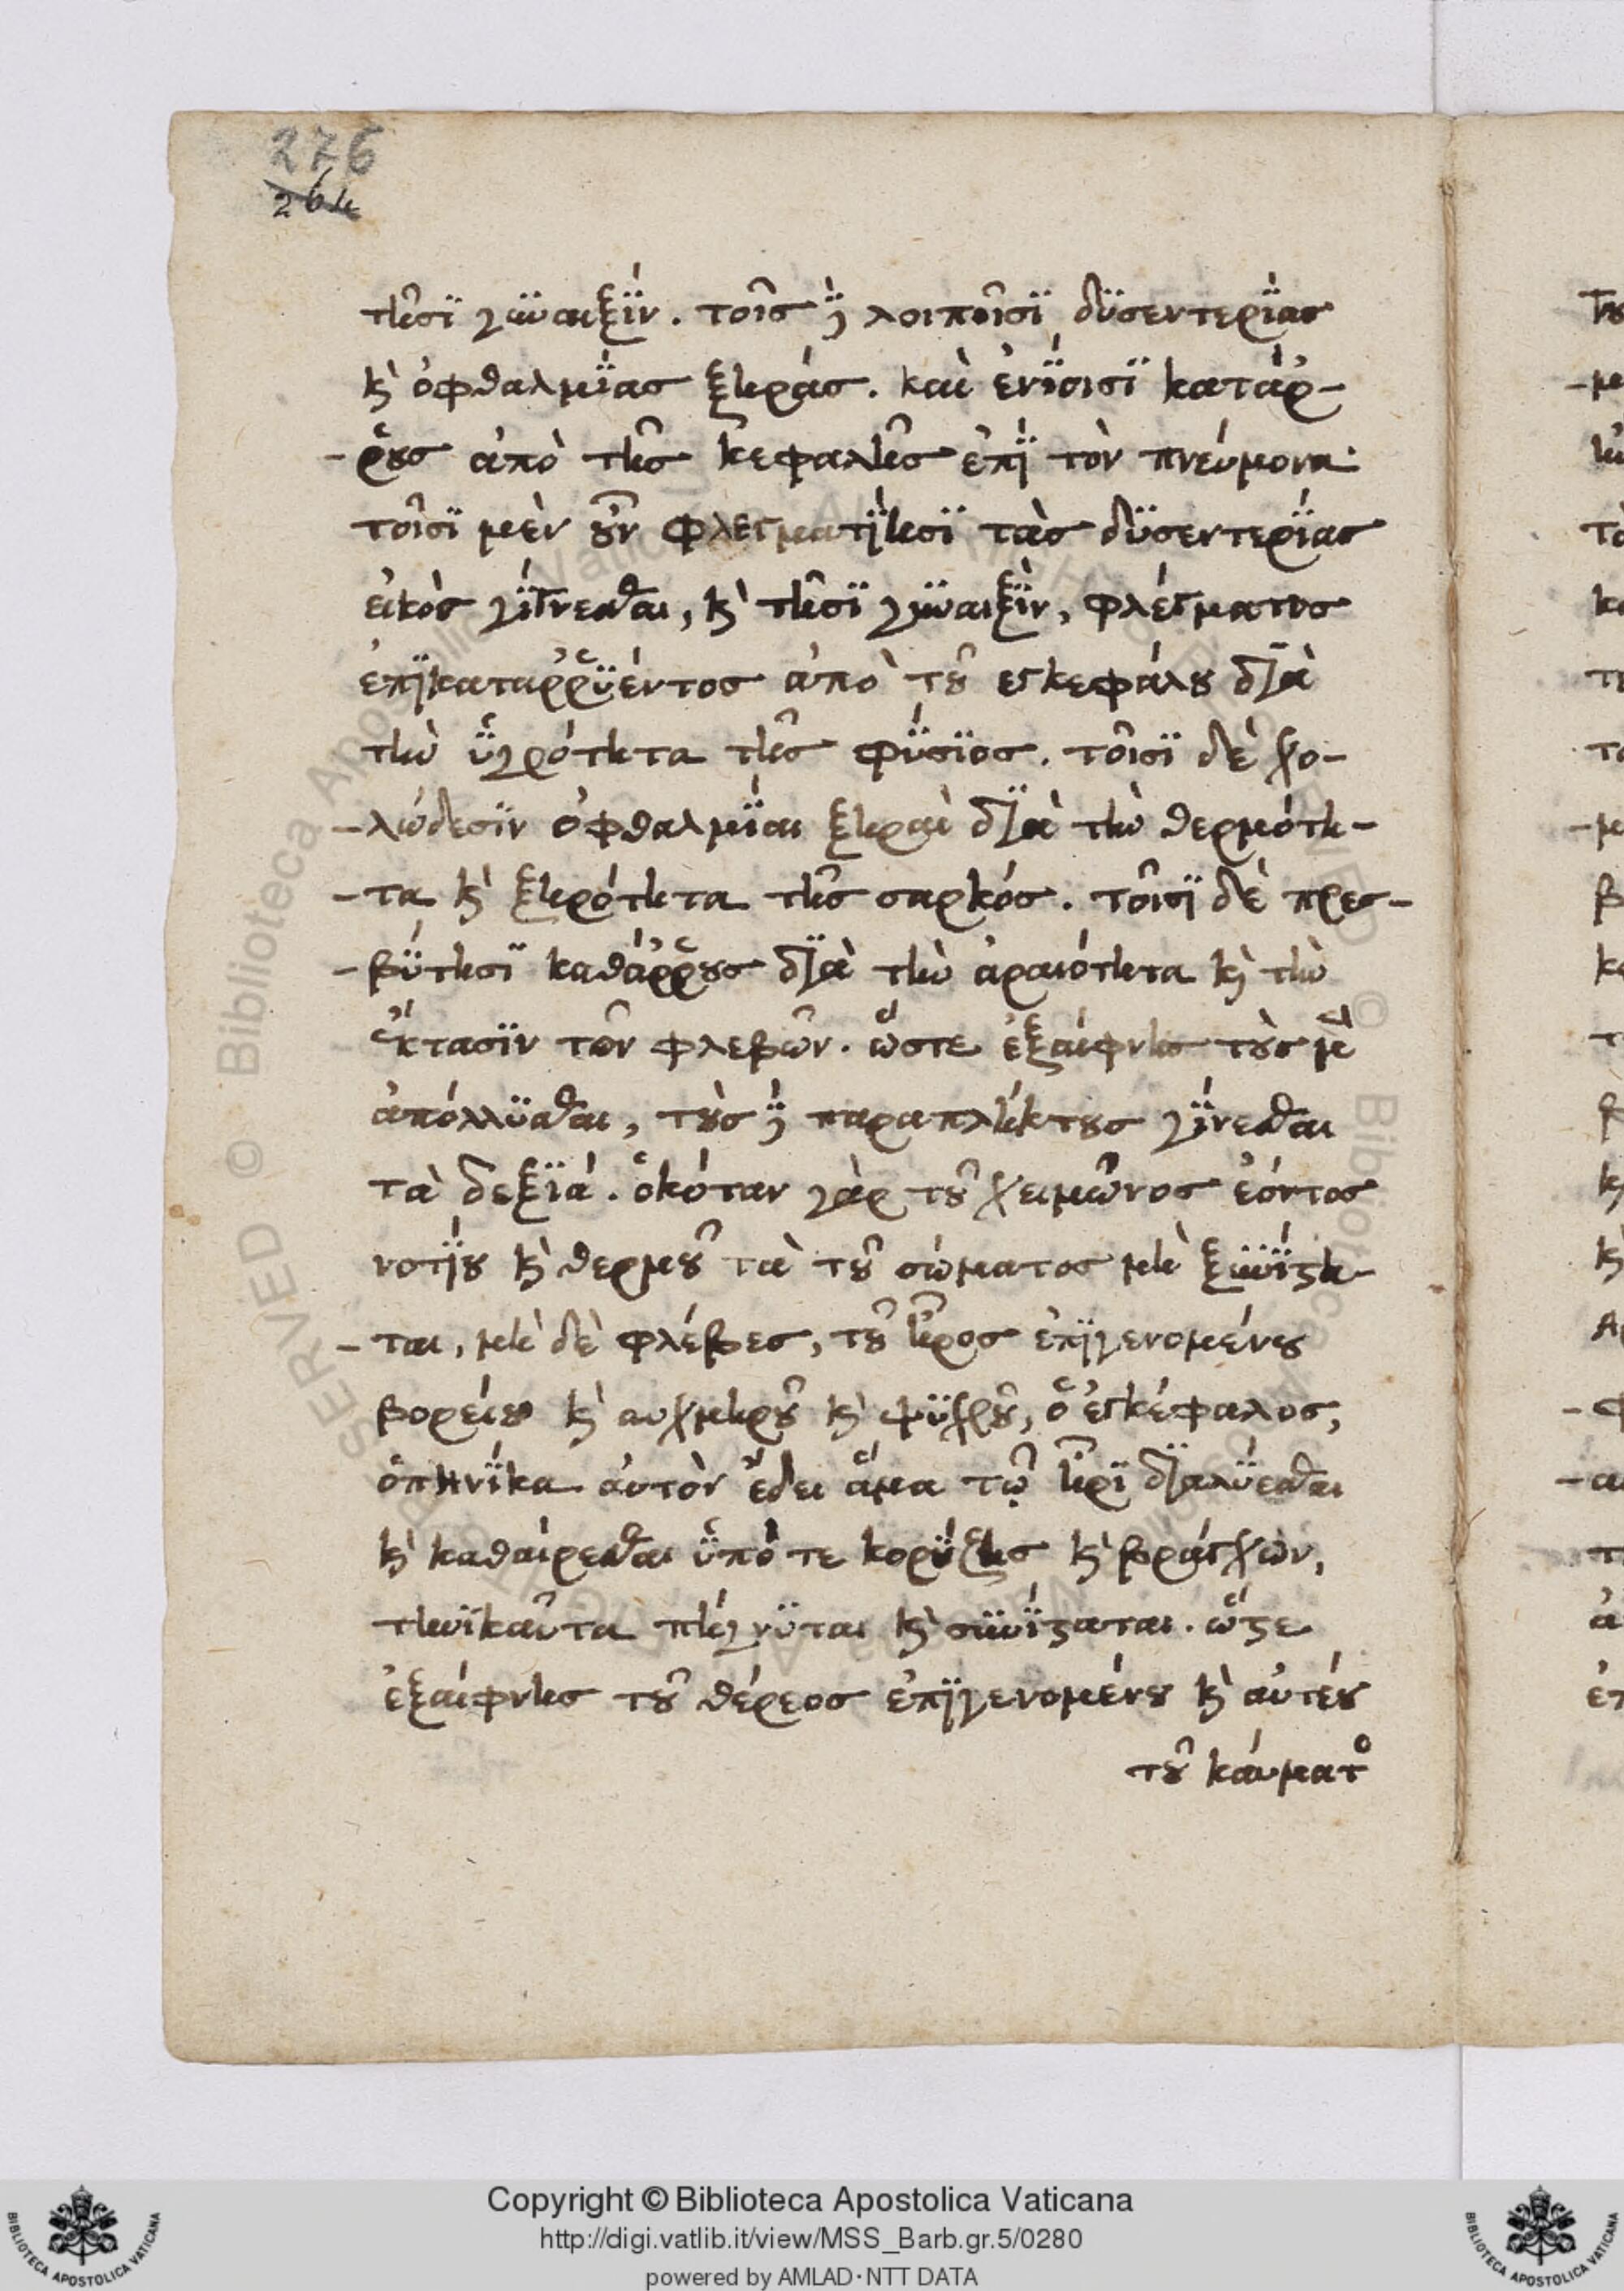 276
264
τῆσϊ γυναιξὶν. τοῖς δὲ λοιποῖσϊ δϋσεντερΐας
κὶ ὀφθαλμΐας ξηράς. καὶ ἐνΐοισϊ κατάῤ-
-ῥους ἀπὸ τῆς κεφαλῆς ἐπῒ τὸν πνεύμονα·
τοῖσϊ μὲν οὖν φλεγματΐησϊ τὰς δϋσεντερΐας
εἰκὸς γΐγνεσθαι, κὶ τῆσϊ γυναιξῒν, φλέγματος
ἐπϊκαταῤῥϋέντος ἀπὸ τοῦ εγκεφάλου δϊὰ
τὴν ὑγρότητα τῆς φΰσϊος. τοῖσϊ δὲ χο-
-λώδεσϊν ὀφθαλμΐαι ξηραὶ δϊὰ τὴν θερμότη-
-τα κὶ ξηρότητα τῆς σαρκός. τοῖσϊ δὲ πρεσ-
-βΰτησϊ καθάῤῥους δϊὰ τὴν ἀραιότητα κὶ τὴν
ἔκτασϊν τῶν φλεβῶν. ὥστε ἐξαίφνης τοὺς μὲν
ἀπόλλϋσθαι, τοὺς δὲ παραπλήκτους γΐνεσθαι
τὰ δεξϊά. ὁκόταν γὰρ τοῦ χειμῶνος ἐόντος
νοτΐου κὶ θερμοῦ τὰ τοῦ σώματος μὴ ξυνΐστη-
-ται, μὴ δὲ φλέβες, τοῦ ἦρος ἐπϊγενομένου
βορείου κὶ αυχμηροῦ κὶ ψϋχροῦ, ὁ ἐγκέφαλος,
ὁπηνΐκα αὐτὸν ἔδει ἅμα τῷ ἦρϊ δϊαλΰεσθαι
κὶ καθαίρεσθαι ὑπό τε κορΰζης κὶ βράγχων,
τηνϊκαῦτα πήγνϋται κὶ συνΐσταται. ὥστε
ἐξαίφνης τοῦ θέρεος ἐπϊγενομένου κὶ αὐτέου
τοῦ καύματος
Copyright © Biblioteca Apostolica Vaticana
http://digi.vatlib.it/view/MSS_Barb.gr.5/0280
powered by AMLAD·NTT DATA